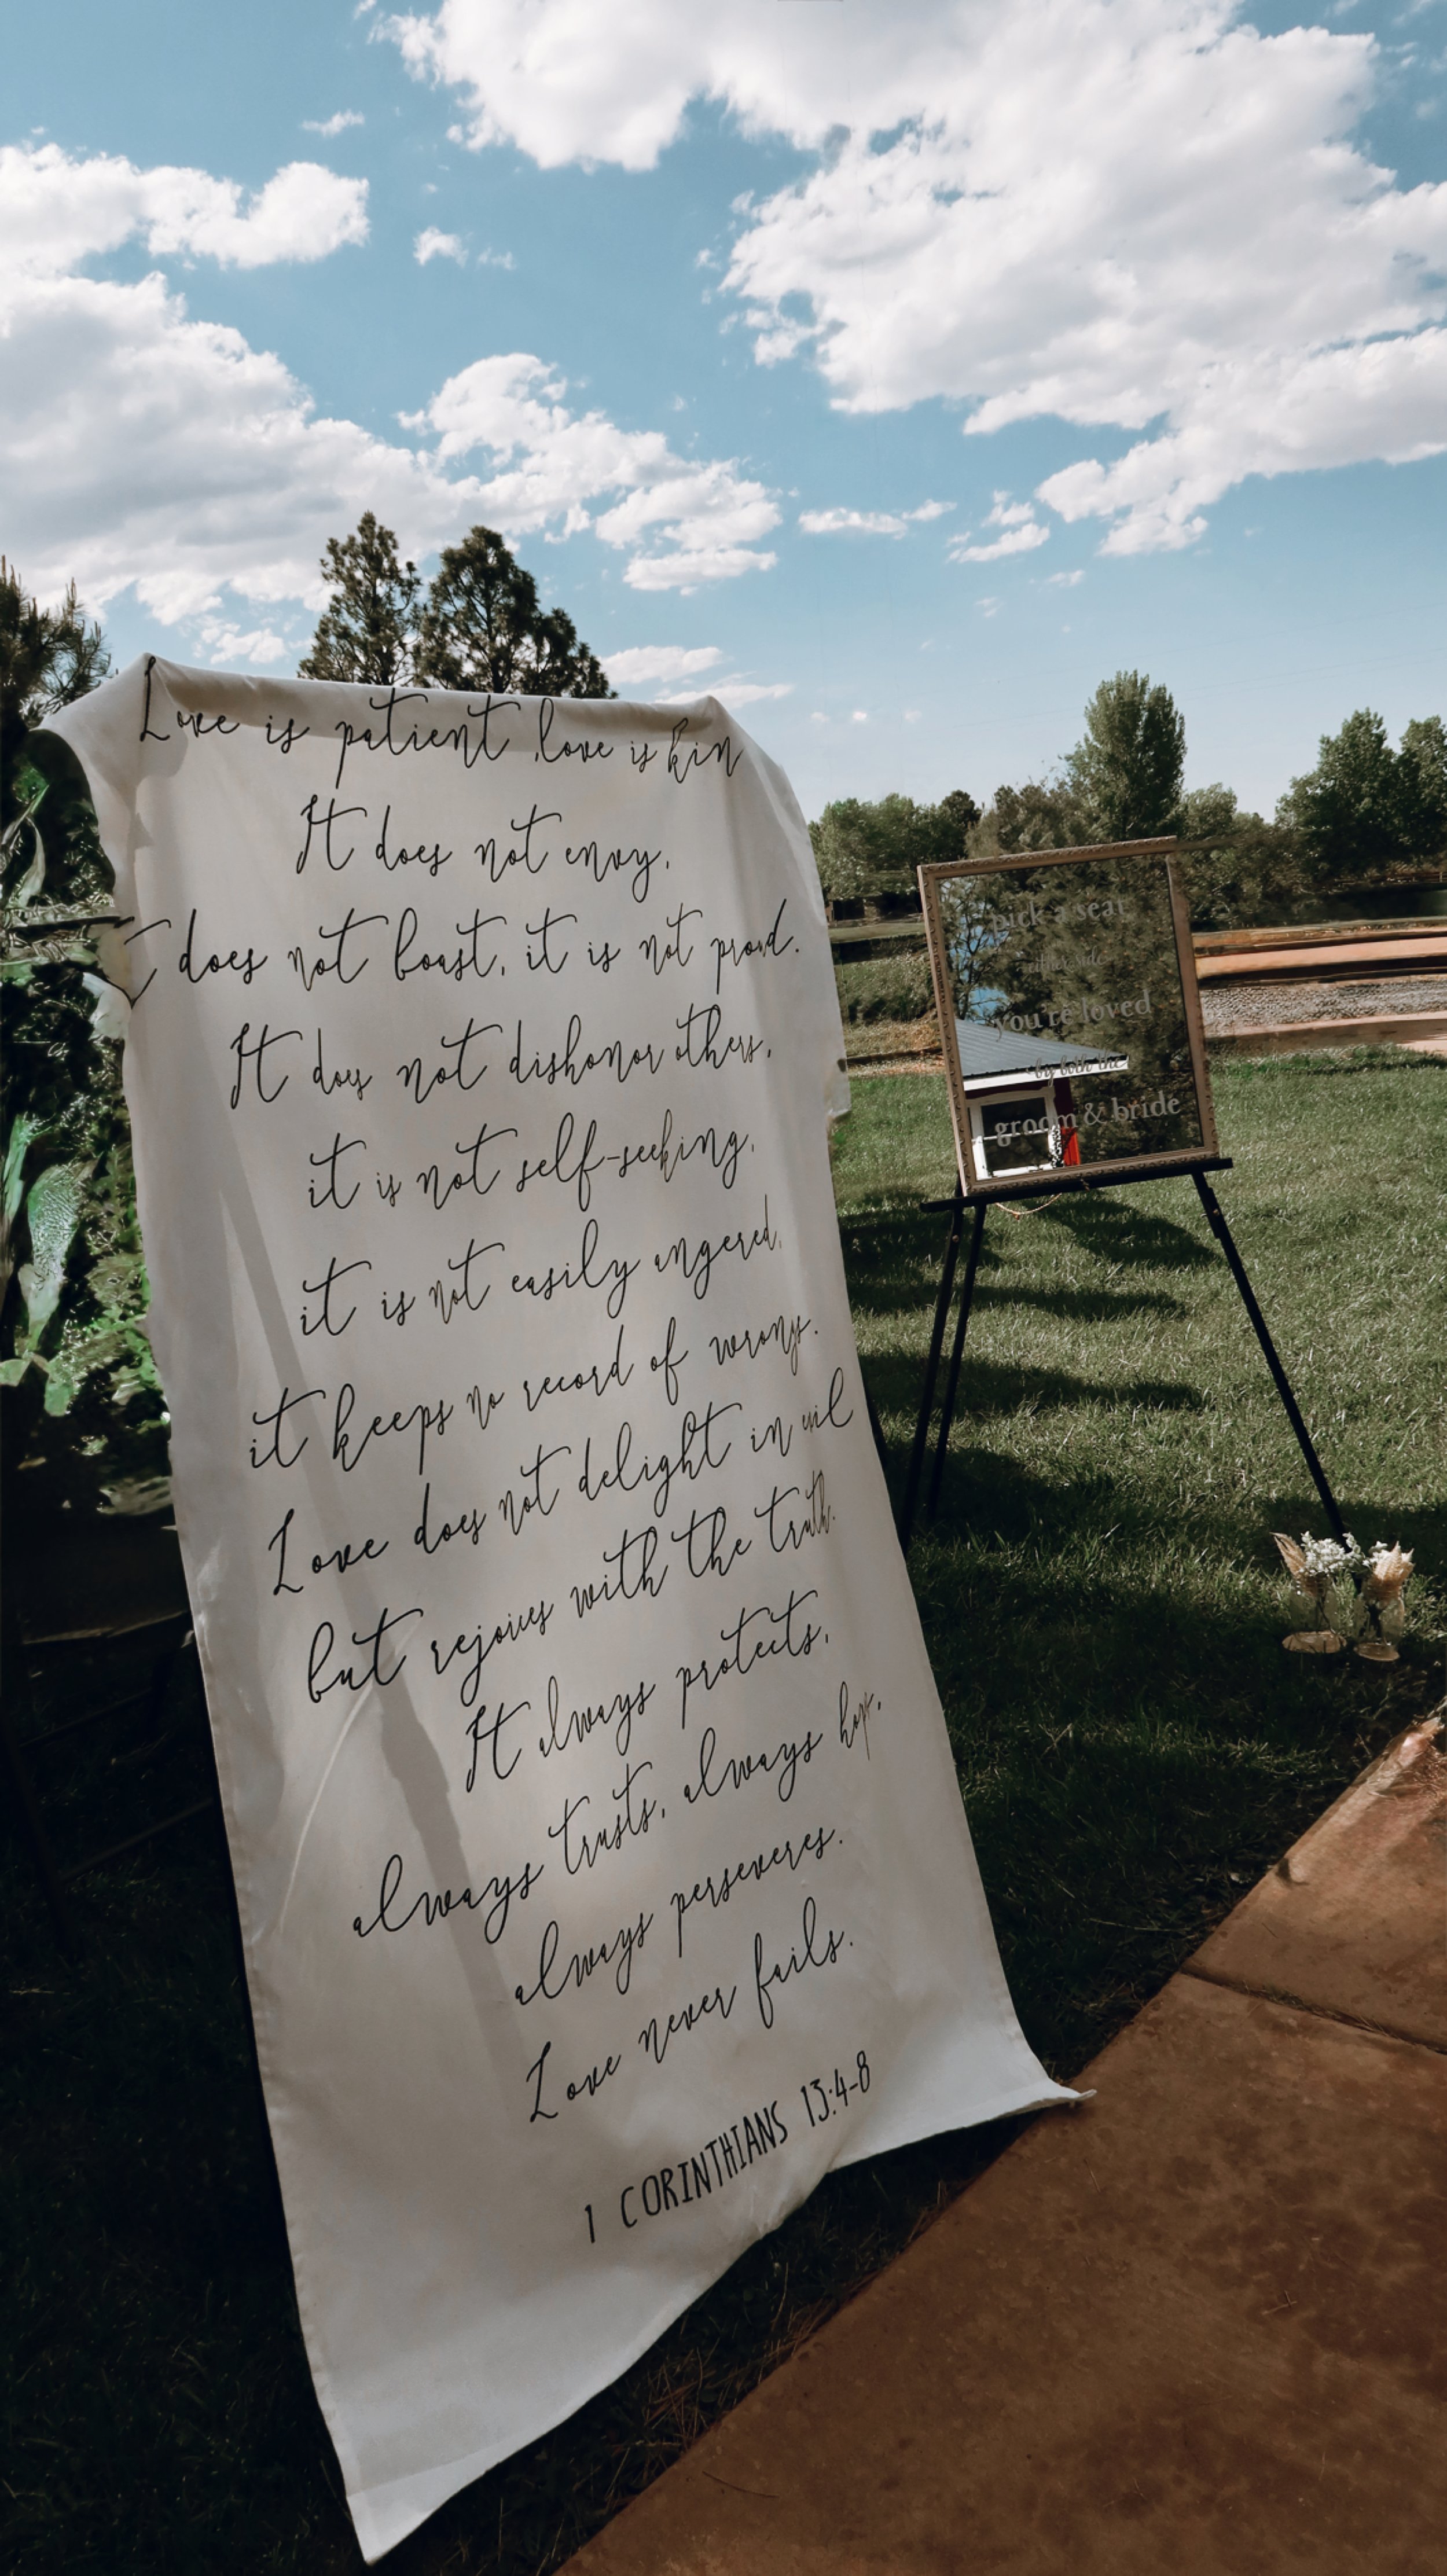 Love is patient, love is kin
It does not envy,
does not boast, it is not proud.
It does not dishonor others,
it is not self-seeking,
it is not easily angered,
it keeps no record of wrongs.
Love does not delight in evil
but rejoices with the truth.
It always protects,
always trusts, always hopes,
always perseveres.
Love never fails.
1 CORINTHIANS 13:4-8
pick a seat
either side
you're loved
by both the
groom & bride